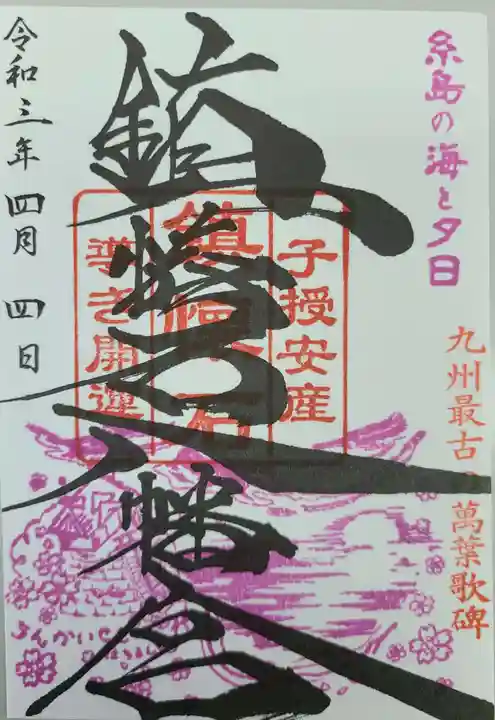 糸島の海と夕日
九州最古の萬葉歌碑
子授安産
鎮懐石
導き開運
鎮懐石八幡宮
令和三年四月四日
ちんかいせき